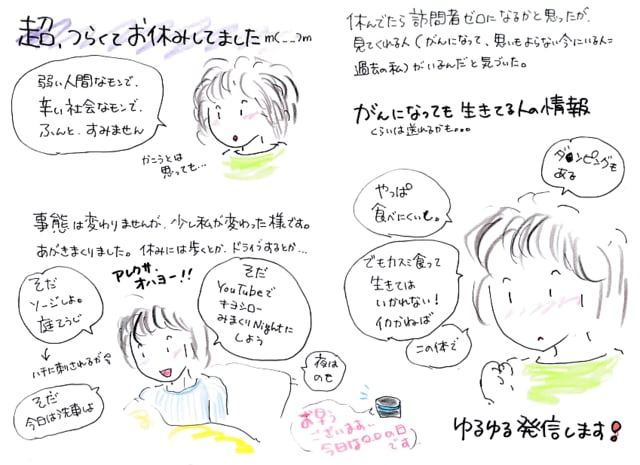 超、つらくてお休みしてましたm(__)m
弱い人間なモンで、
辛い社会なモンで、
ふんと、すみません
かこうとは
思っても…
事態は変わりませんが、少し私が変わった様です。
あがきまくりました。休みには歩くとか、ドライブするとか…
そだ
ソージしよ。
庭そうじ
ハチに刺されるが
そだ
今日は洗車しよ
アレクサ、
オハヨー!!
そだ
YouTubeで
キヨシロー
みまくりNightに
しよう
夜は
のも
お早う
ございます。
今日は〇〇の日
です。
休んでたら訪問者ゼロになるかと思ったが、
見てくれる人(がんになって、思いもよらない今にいる人=
過去の私)がいるんだと気づいた。
がんになっても生きてる人の情報
くらいは送れるかも…
ダンピングも
ある
やっぱ
食べにくいも。
でもカスミ食って
生きては
いかれない!
イカがねば
この体で
ゆるゆる発信します!